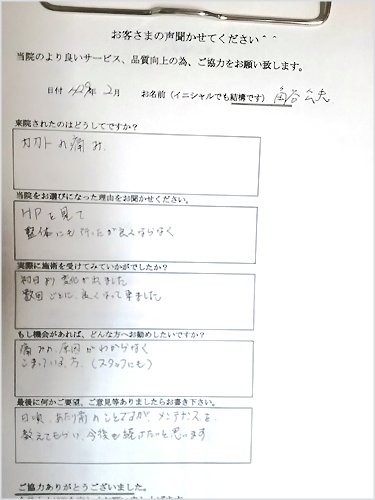 お客さまの声聞かせてください＾＾
当院のより良いサービス、品質向上の為、ご協力をお願い致します。
日付 29年 2月 お名前（イニシャルでも結構です）
来院されたのはどうしてですか？
カカトの痛み
当院をお選びになった理由をお聞かせください。
HPを見て
整体にも行ったが良くならなく
実際に施術を受けてみていかがでしたか？
初日より変化が出ました
数回ごとに良くなって来ました
もし機会があれば、どんな方へお勧めしたいですか？
痛みの原因がわからなく
こまっている方、（スタッフにも）
最後に何かご要望、ご意見等ありましたらお書き下さい。
日頃、あたり前のことですが、メンテナンスを
教えてもらい、今後も続けたいと思います
ご協力ありがとうございました。